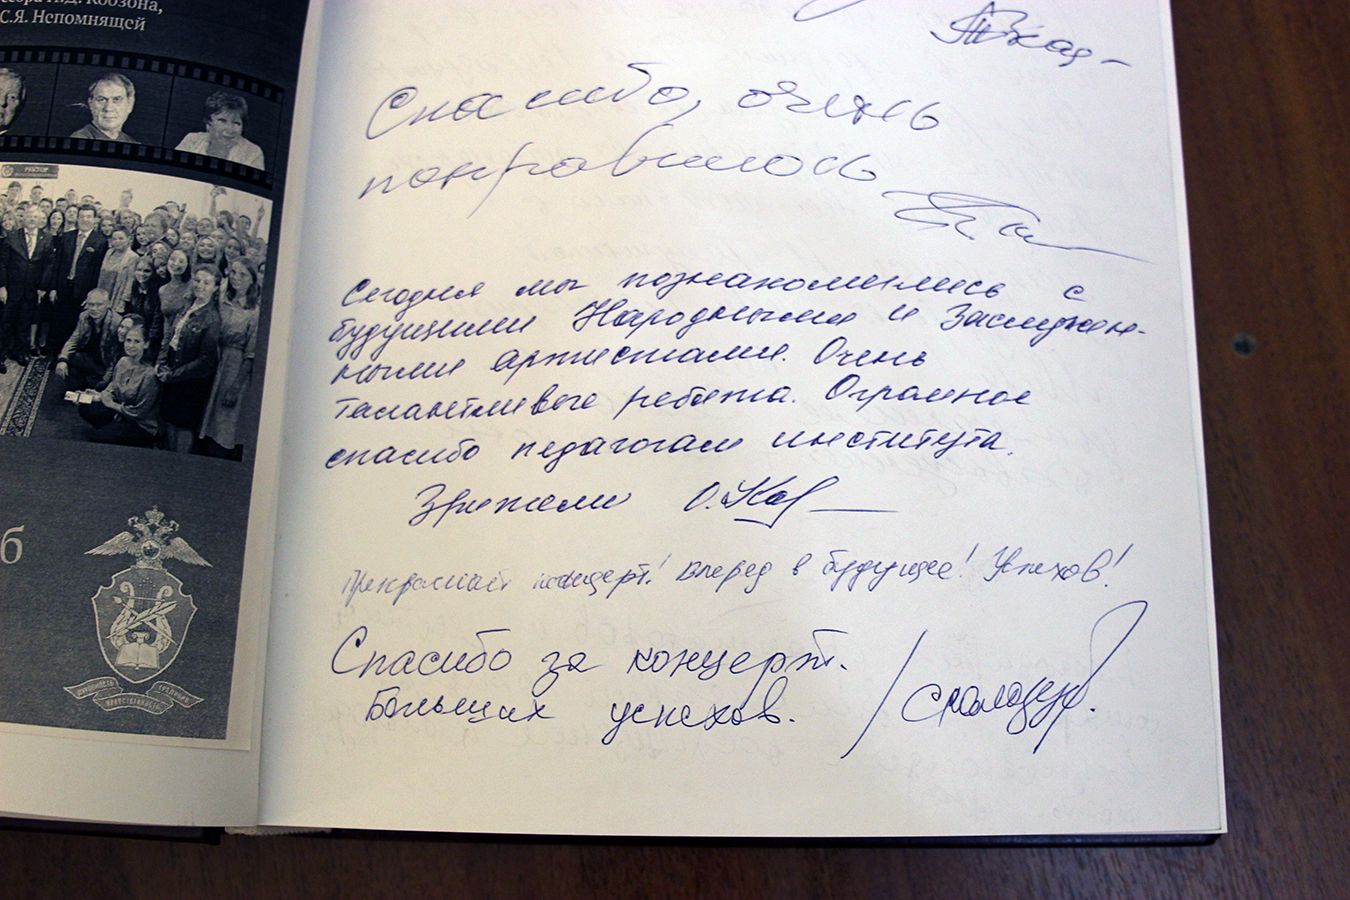 С.Я. Непомнящей
РЕКТОР
б
Спасибо, очень
понравилось
Сегодня мы познакомились с
будущими Народными и Заслужен-
ными артистами. Очень
талантливые ребята. Огромное
спасибо педагогам института.
Зрители О.
Прекрасный концерт! Вперед в будущее! Успехов!
Спасибо за концерт.
Больших успехов.